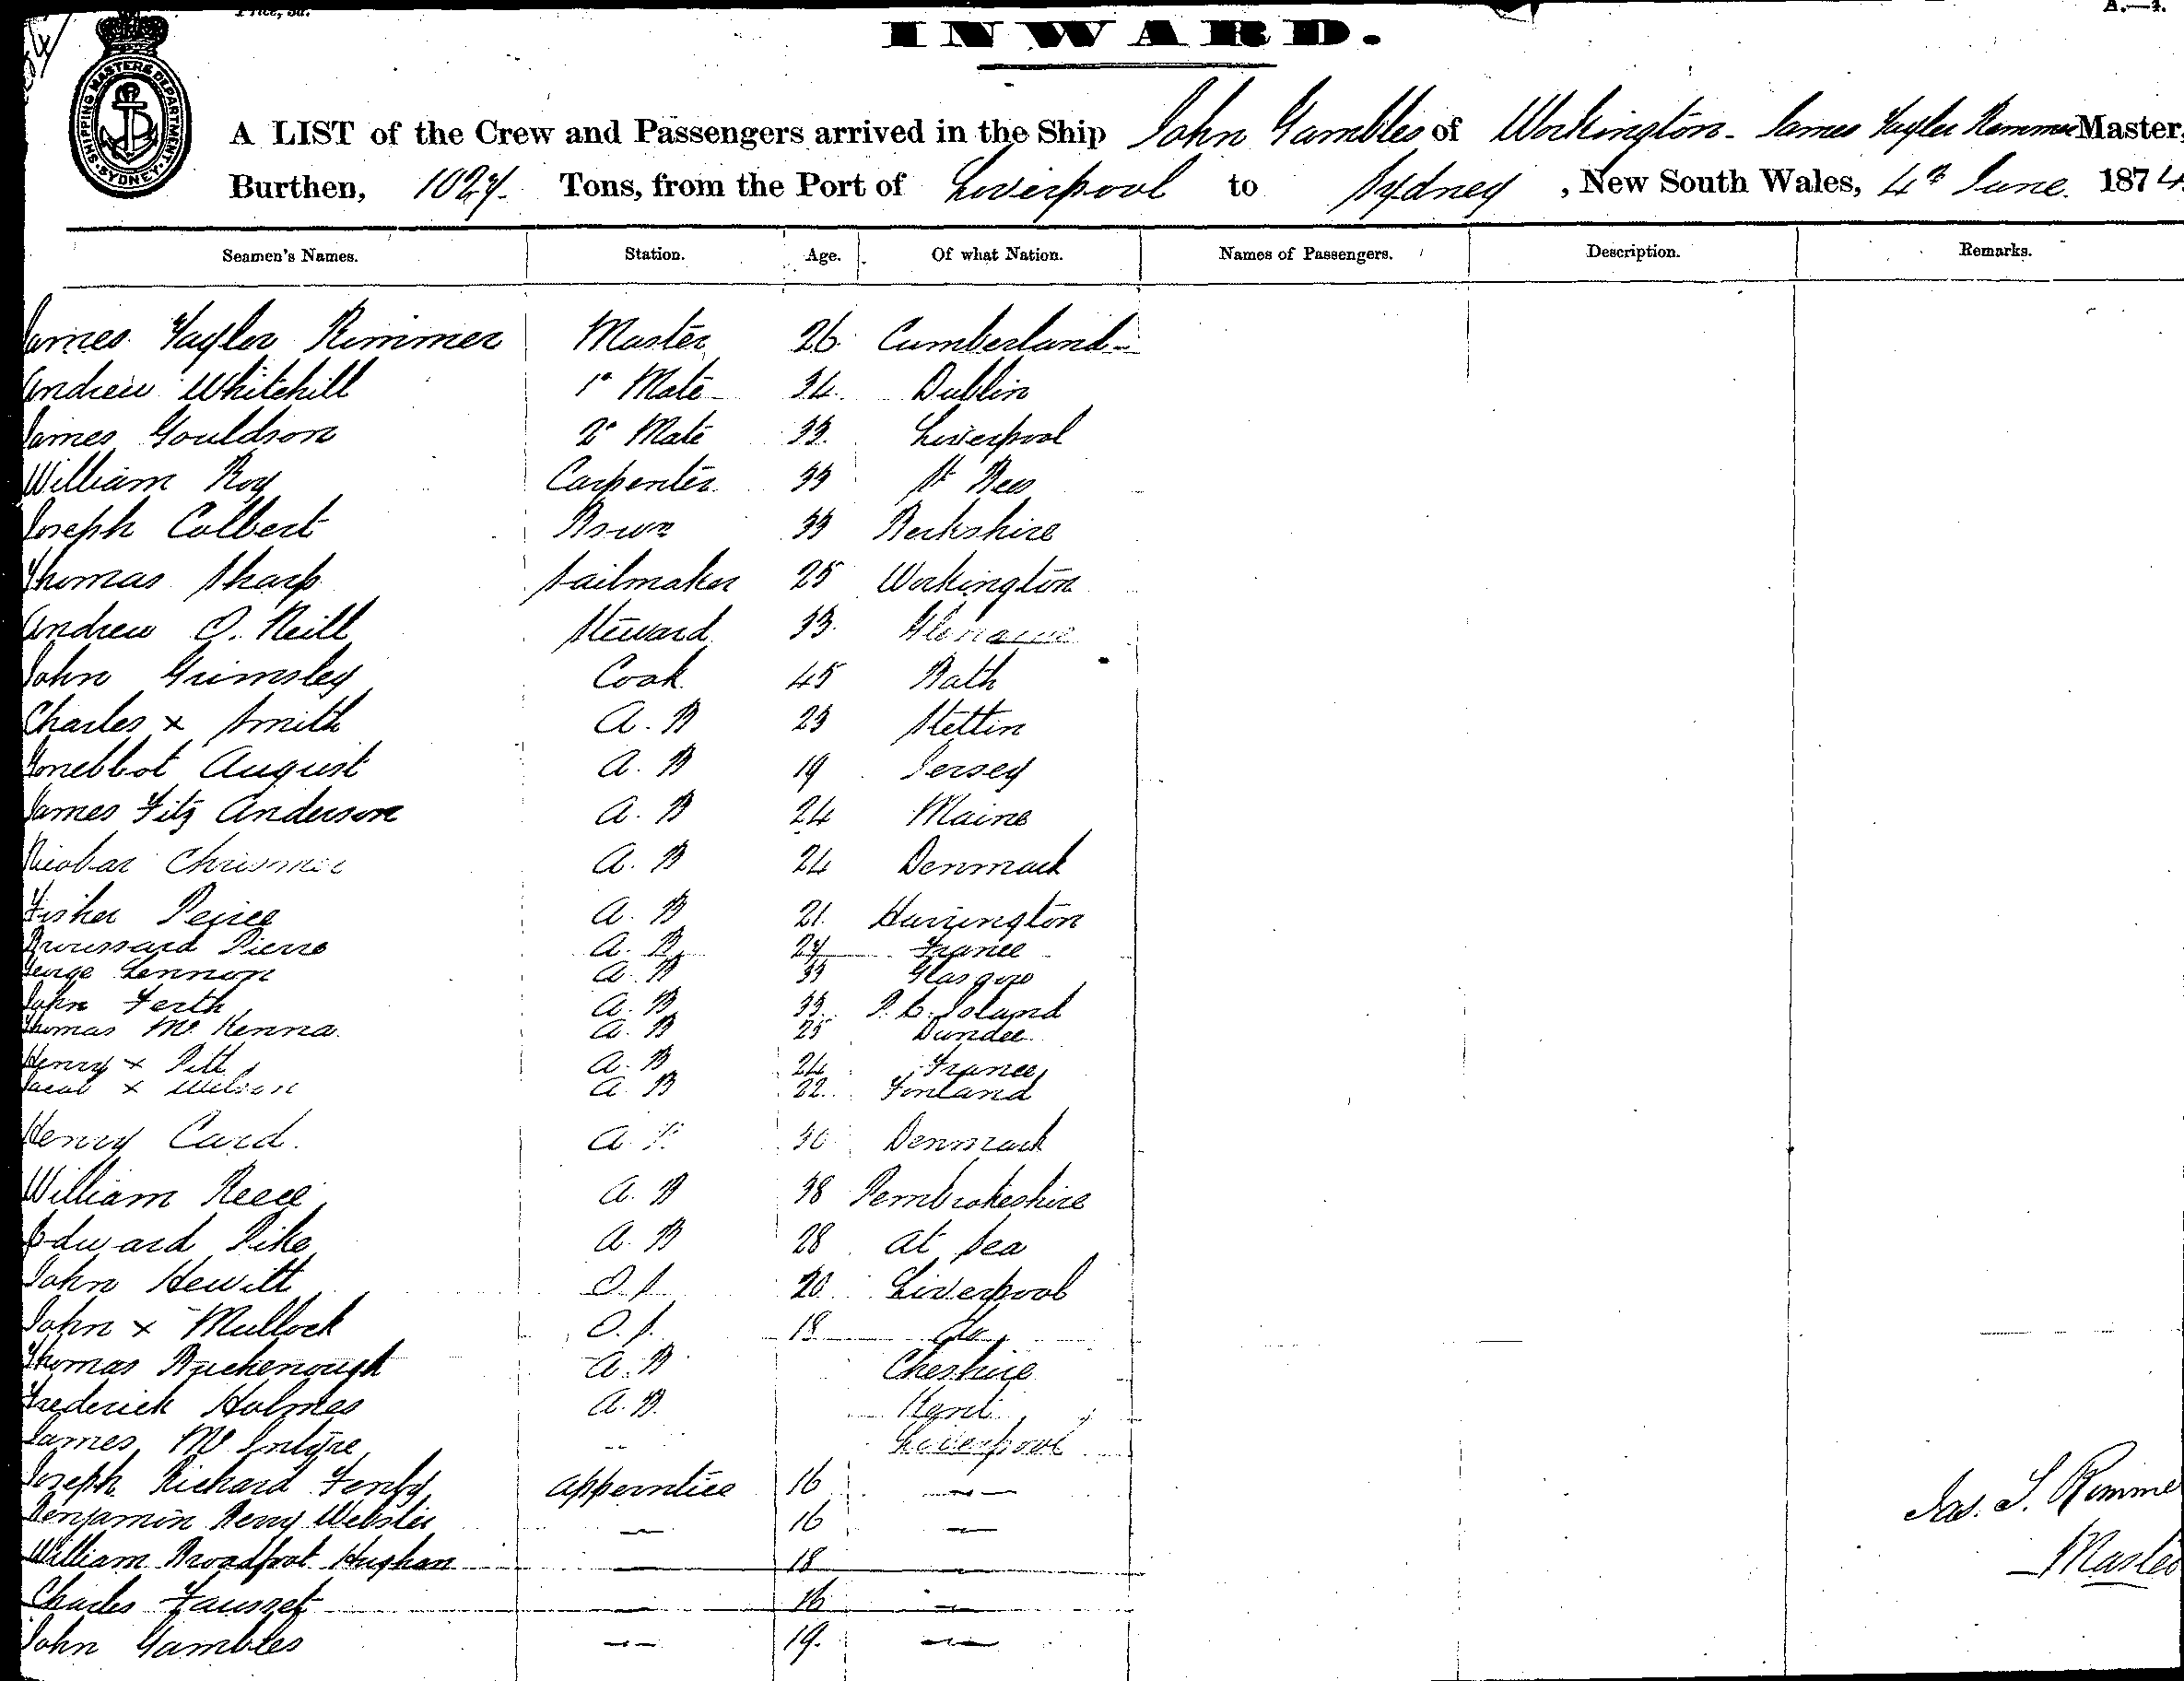 Price, 3d.
A.—4.
INWARD.
SHIPPING MASTERS DEPARTMENT SYDNEY
A LIST of the Crew and Passengers arrived in the Ship John Gambles of Workington - James Tayler Rimmer Master,
Burthen, 1027. Tons, from the Port of Liverpool to Sydney, New South Wales, 4th June 1874
Seamen's Names. Station. Age. Of what Nation. Names of Passengers. Description. Remarks.
James Tayler Rimmer Master 26 Cumberland
Andrew Whitehill 1st Mate 34 Dublin
James Gouldson 2d Mate 33 Liverpool
William Roy Carpenter 33 St Bees
Joseph Colbert Bosun 33 Berkshire
Thomas Sharp Sailmaker 25 Workington
Andrew O. Neill Steward 33
John Grimsley Cook 45 Bath
Charles x Smith A. B 23 Stettin
August A. B 19 Jersey
James Fitz Anderson A. B 24 Maine
A. B 24 Denmark
Fisher Peirce A. B 21 Harrington
Broussard Pierre A. B 27 France
George Lennon A. B 33 Glasgow
John Ferth A. B 33 P. E. Island
Thomas Mc Kenna A. B 25 Dundee
Henry x Pitt A. B 24 France
Jacob x Wilson A. B 22 Finland
Henry Card A. B 30 Denmark
William Reece A. B 38 Pembrokeshire
Edward Pike A. B 28 at Sea
John Hewitt O. S 20 Liverpool
John x Mullock O. S. 18 do
Thomas Buckenough A. B Cheshire
Frederick Holmes A. B. Kent
James Mc Intyre " Liverpool
Joseph Richard Apperntice 16 —
Benjamin Henry Webster — 16 —
William Broadfoot Hughan — 18 —
Charles Fausset — 16 —
John Gambles — 19. —
Jas. T. Rimme
Master